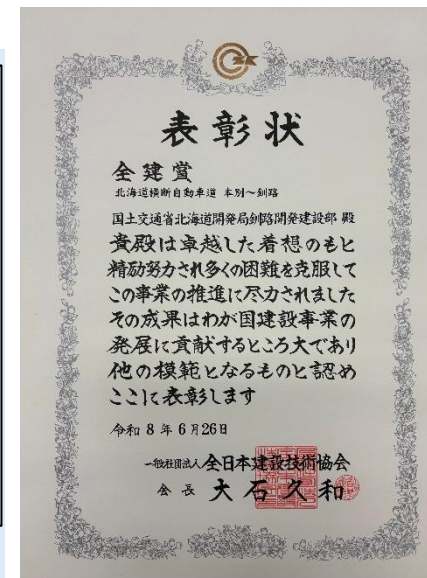 表彰状
全建賞
北海道横断自動車道 本別~釧路
国土交通省北海道開発局釧路開発建設部 殿
貴殿は卓越した着想のもと
精励努力され多くの困難を克服して
この事業の推進に尽力されました
その成果はわが国建設事業の
発展に貢献するところ大であり
他の模範となるものと認め
ここに表彰します
令和8年6月26日
一般社団法人 全日本建設技術協会
会長 大石久和